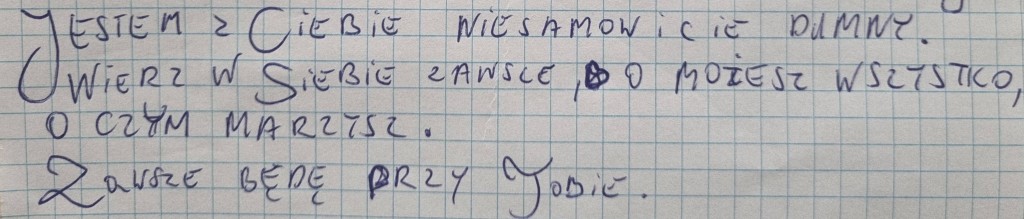 JESTEM Z CIEBIE NIESAMOWICIE DUMNY.
WIERZ W SIEBIE ZAWSZE, BO MOŻESZ WSZYSTKO,
O CZYM MARZYSZ.
ZAWSZE BĘDĘ PRZY TOBIE.